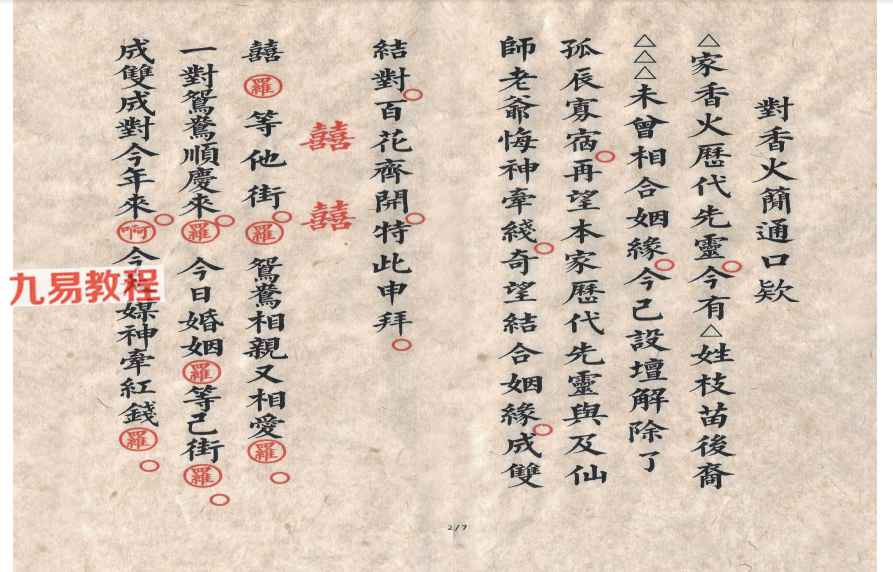 對香火簡通口欵
△家香火歷代先靈。今有△姓枝苗後裔
△△△未曾相合姻緣。今己設壇解除了
孤辰寡宿。再望本家歷代先靈與及仙
師老爺悔神牽綫。奇望結合姻緣。成雙
結對。百花齊開。特此申拜。
囍 囍
囍㊣羅等他街。羅鴛鴦相親又相愛羅。
一對鴛鴦順慶來。羅今日婚姻羅等己街羅。
成雙成對今年來。啊今 媒神牽紅錢羅。
九易教程
2/7